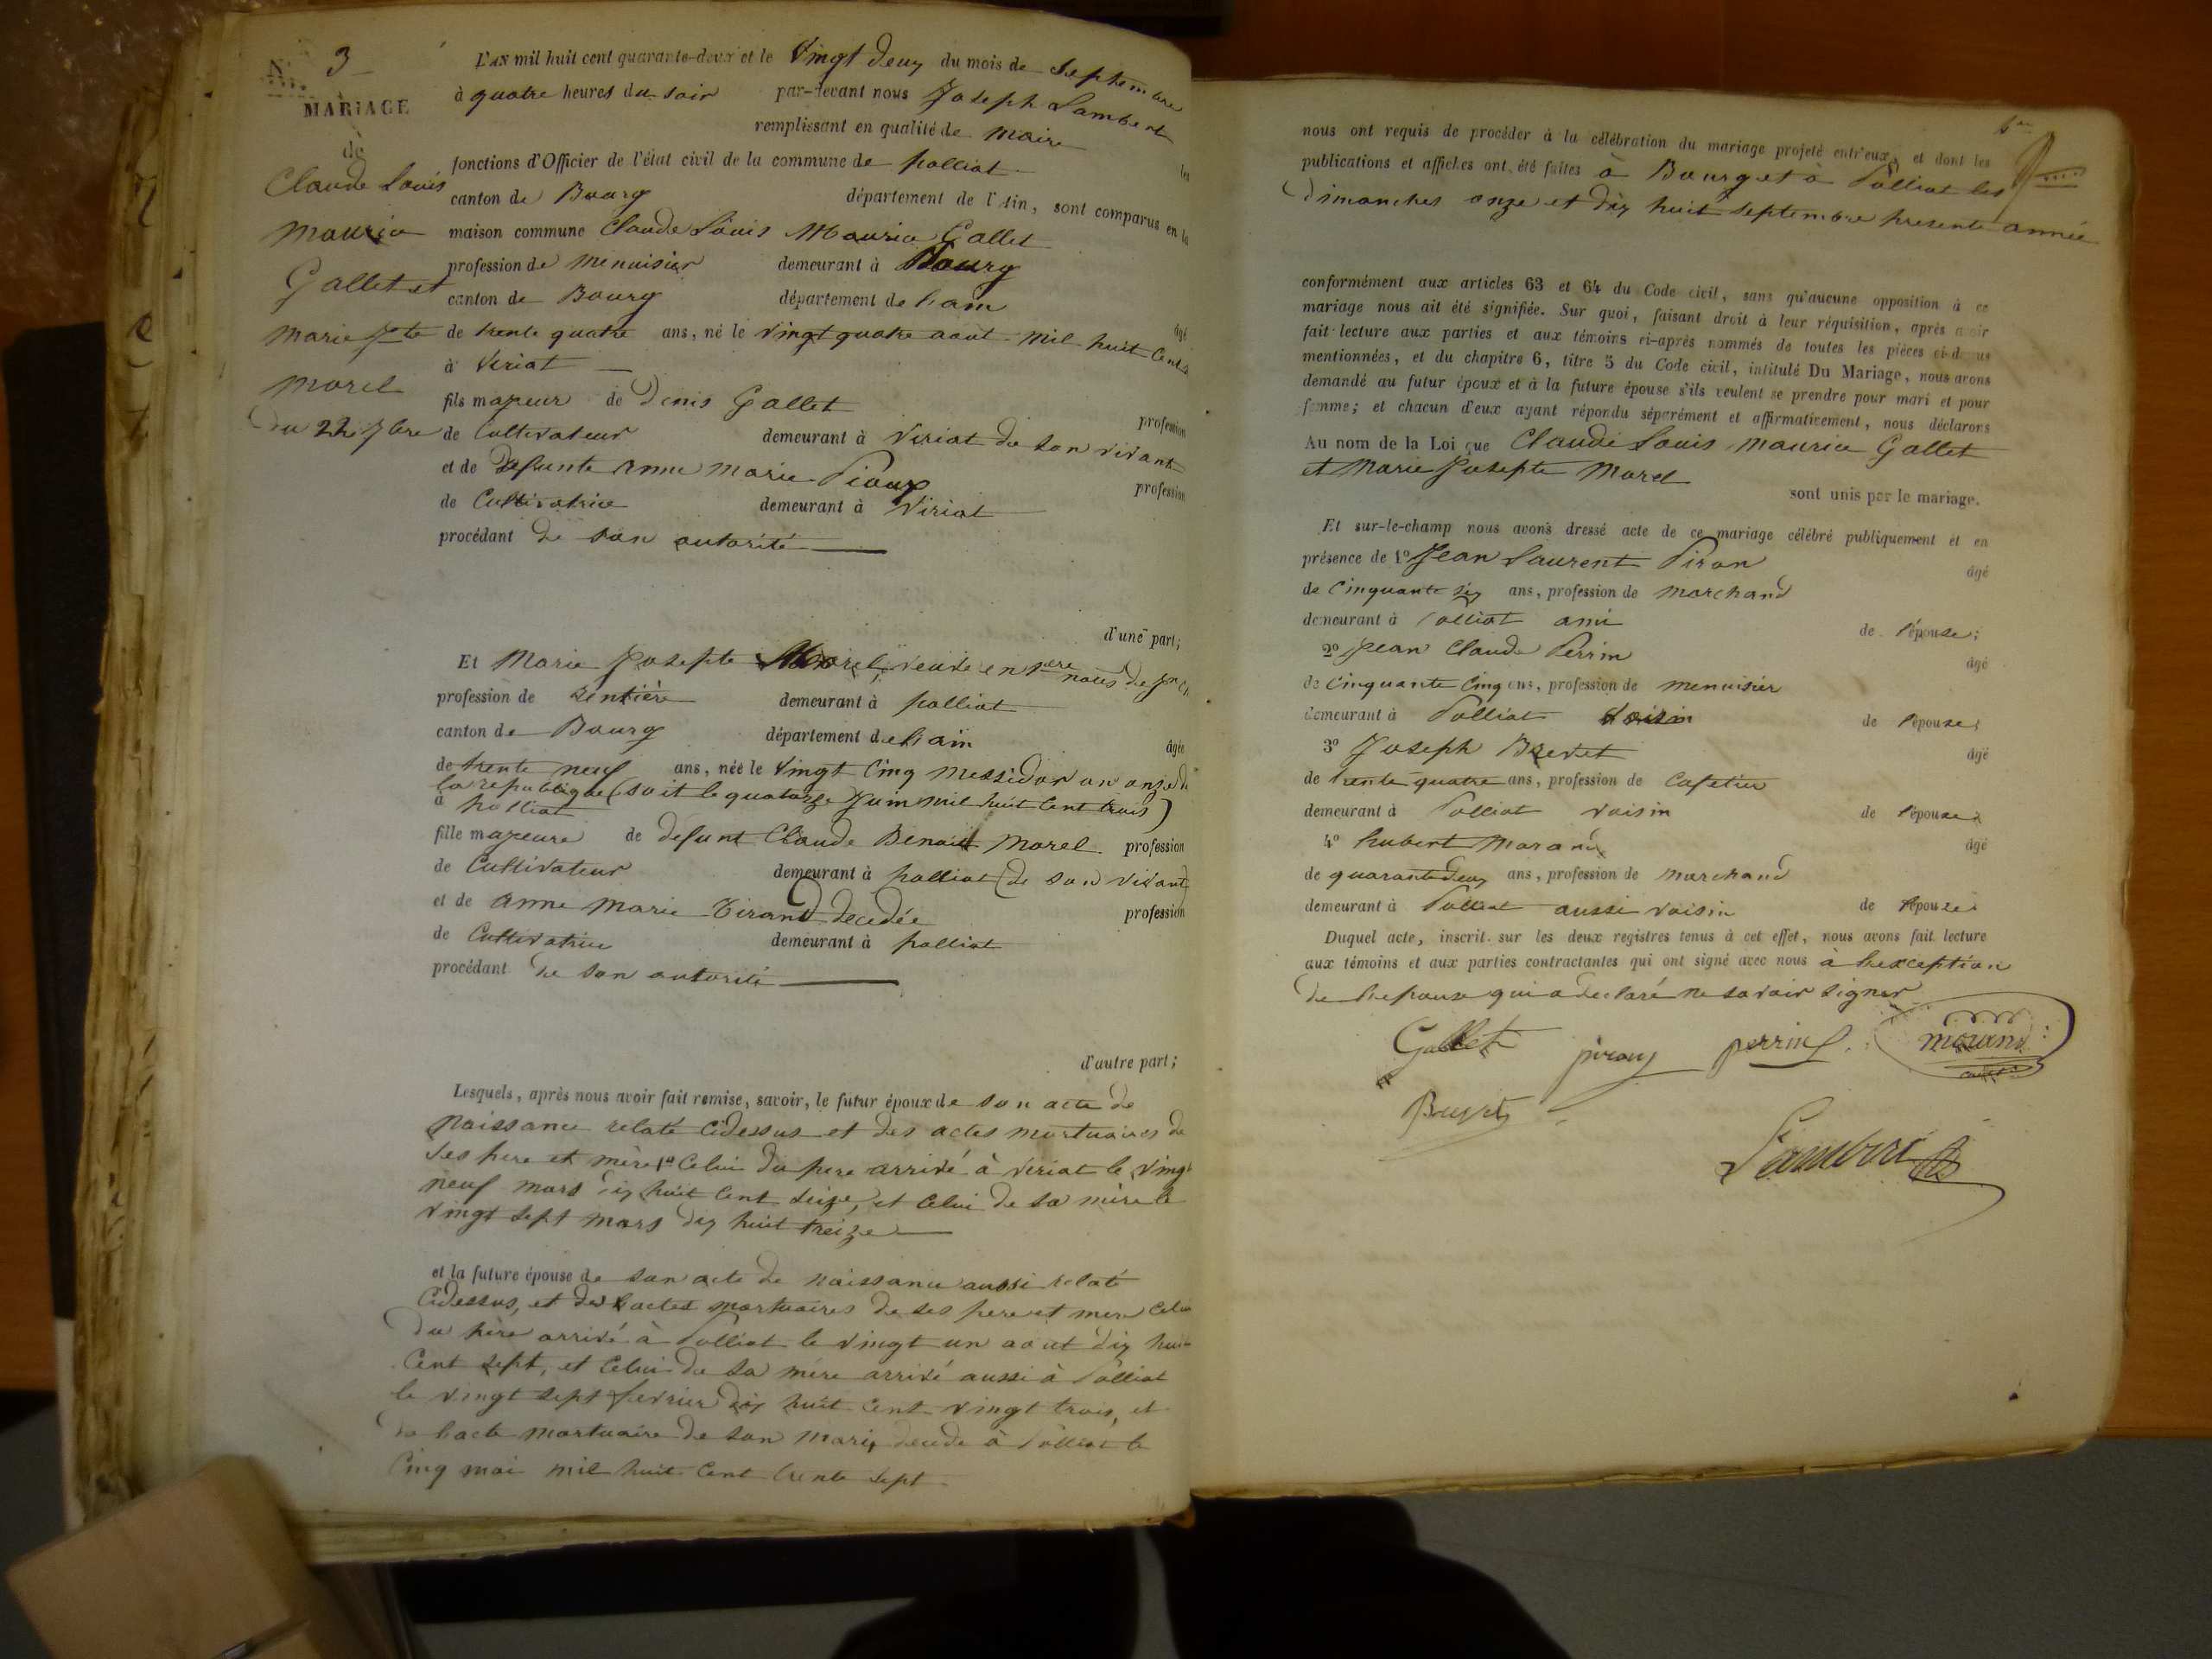 N. 3
MARIAGE
de
Claude Louis
Maurice
Gallet et
Marie Jte
Morel
du 22 7bre
L'AN mil huit cent quarante-deux et le vingt deux du mois de Septembre
à quatre heures du soir par-devant nous Joseph Lambert
remplissant en qualité de maire les
fonctions d'Officier de l'état civil de la commune de polliat
canton de Bourg département de l'Ain, sont comparus en la
maison commune Claude Louis Maurice Gallet
profession de menuisier demeurant à Bourg
canton de Bourg département de l'ain âgé
de trente quatre ans, né le vingt quatre aout mil huit cents
à Viriat
fils majeur de Denis Gallet profession
de Cultivateur demeurant à Viriat de son vivant
et de defunte anne marie Pioux profession
de Cultivatrice demeurant à Viriat
procédant de son autorité
d'une part;
Et Marie Josepte Morel, veuve en 1ere noces de
profession de rentière demeurant à polliat
canton de Bourg département de l'ain âgée
de trente neuf ans, née le vingt cinq messidor an onze de
la republique (soit le quatorze Juin mil huit cent trois)
à polliat
fille majeure de defunt Claude Benoit Morel profession
de Cultivateur demeurant à polliat (de son vivant)
et de anne marie Tirand decedée profession
de Cultivatrice demeurant à polliat
procédant de son autorité
d'autre part;
Lesquels, après nous avoir fait remise, savoir, le futur époux de son acte de
Naissance relaté Cidessus et des actes mortuaires de
ses pere et mère 1º Celui du pere arrivé à Viriat le vingt
neuf mars dix huit cent seize, et celui de sa mère le
vingt sept mars dix huit treize
et la future épouse de son acte de naissance aussi relaté
Cidessus, et des actes mortuaires de ses pere et mere Celui
du père arrivé à Polliat le vingt un aout dix huit
Cent sept, et Celui de sa mère arrivé aussi à Polliat
le vingt sept fevrier dix huit Cent vingt trois, et
de l'acte mortuaire de son mari, decede à Polliat le
Cinq mai mil huit Cent trente sept
nous ont requis de procéder à la célébration du mariage projeté entr'eux, et dont les
publications et affiches ont été faites à Bourg et à Polliat les
Dimanches onze et dix huit Septembre presente année
conformément aux articles 63 et 64 du Code civil, sans qu'aucune opposition à ce
mariage nous ait été signifiée. Sur quoi, faisant droit à leur réquisition, après avoir
fait lecture aux parties et aux témoins ci-après nommés de toutes les pièces ci-dessus
mentionnées, et du chapitre 6, titre 5 du Code civil, intitulé Du Mariage, nous avons
demandé au futur époux et à la future épouse s'ils veulent se prendre pour mari et pour
femme; et chacun d'eux ayant répondu séparément et affirmativement, nous déclarons
Au nom de la Loi que Claude Louis Maurice Gallet
et Marie Josepte Morel
sont unis par le mariage.
Et sur-le-champ nous avons dressé acte de ce mariage célébré publiquement et en
présence de 1º Jean Laurent Piron âgé
de Cinquante six ans, profession de Marchand
demeurant à Polliat ami de l'épouse;
2º Jean Claude Perrin âgé
de Cinquante Cinq ans, profession de menuisier
demeurant à Polliat voisin de l'épouse;
3º Joseph Brevet âgé
de trente quatre ans, profession de Cafetier
demeurant à Polliat voisin de l'épouse;
4º hubert Morand âgé
de quarante deux ans, profession de Marchand
demeurant à Polliat aussi voisin de l'épouse;
Duquel acte, inscrit sur les deux registres tenus à cet effet, nous avons fait lecture
aux témoins et aux parties contractantes qui ont signé avec nous à l'exception
de l'epouse qui a declaré ne savoir signer
Gallet perrin morand
Lambert